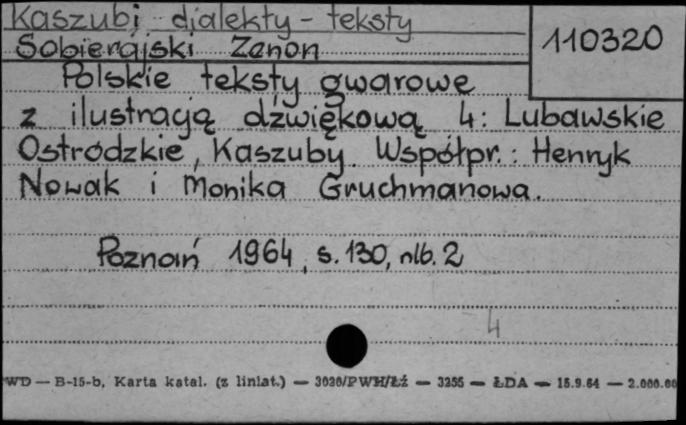 Kaszubi - dialekty - teksty
110320
Sobierajski Zenon
Polskie teksty gwarowe
z ilustracją dźwiękową 4: Lubawskie
Ostródzkie, Kaszuby. Współpr.: Henryk
Nowak i Monika Gruchmanowa.
Poznań 1964, s. 130, nlb. 2
4
PWD — B-15-b, Karta katal. (z liniat.) — 3020/PWH/Łź — 3255 — ŁDA — 15.9.64 — 2.000.00